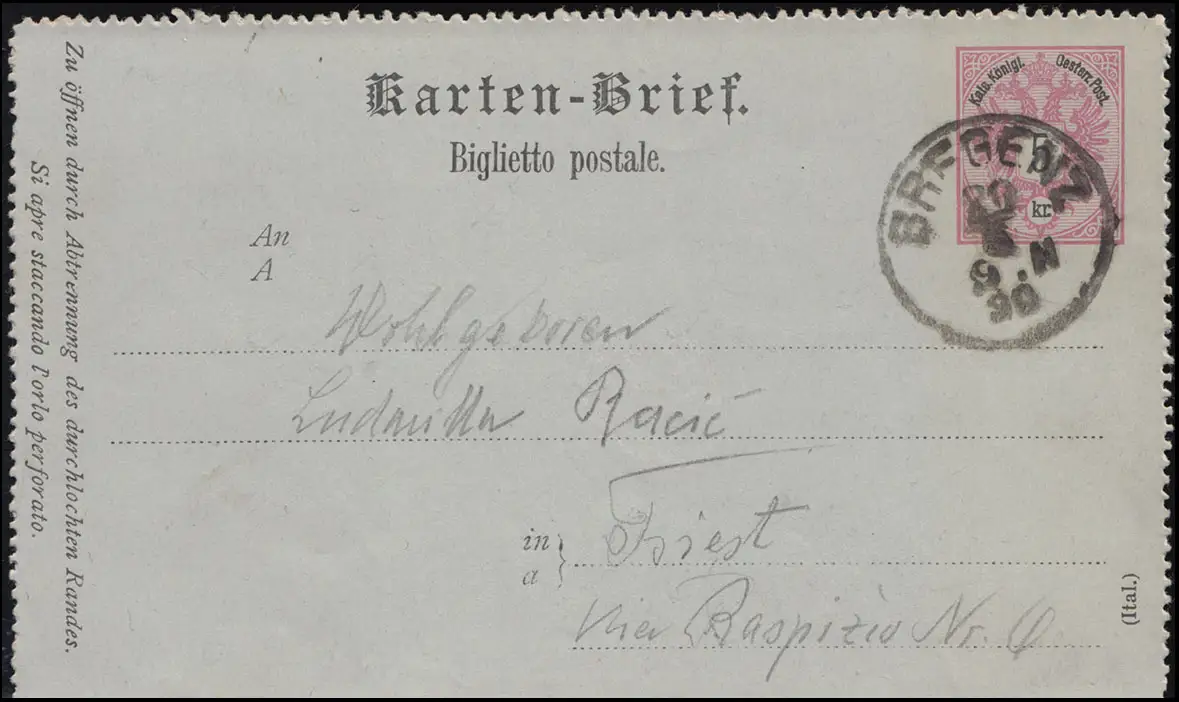 Karten-Brief.
Biglietto postale.
Kais. Königl. Oesterr. Post.
5
kr.
BREGENZ
9. N
90
An
A
Wohlgeboren
Ludmilla Racić
in
a
Triest
Via Raspizio Nr.
(Ital.)
Zu öffnen durch Abtrennung des durchlochten Randes.
Si apre staccando l'orlo perforato.